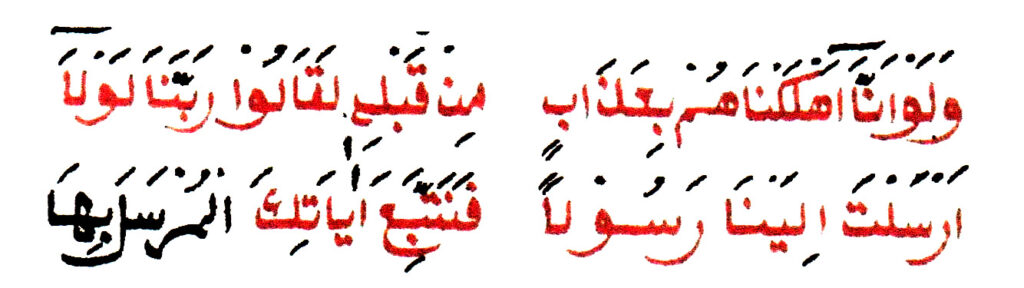 وَلَوْ اَنَّٓا اَهْلَكْنَاهُمْ بِعَذَابٍ مِنْ قَبْلِهِ لَقَالُوا رَبَّنَا لَوْلَٓا
اَرْسَلْتَ اِلَيْنَا رَسُولاً فَنَتَّبِعَ اٰيَاتِكَ الْمُرْسَلَ بِهَا